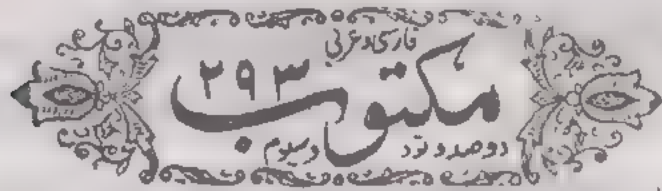 فارسی و عربی
مکتوب ۲۹۳
دو صد و نود و سوم